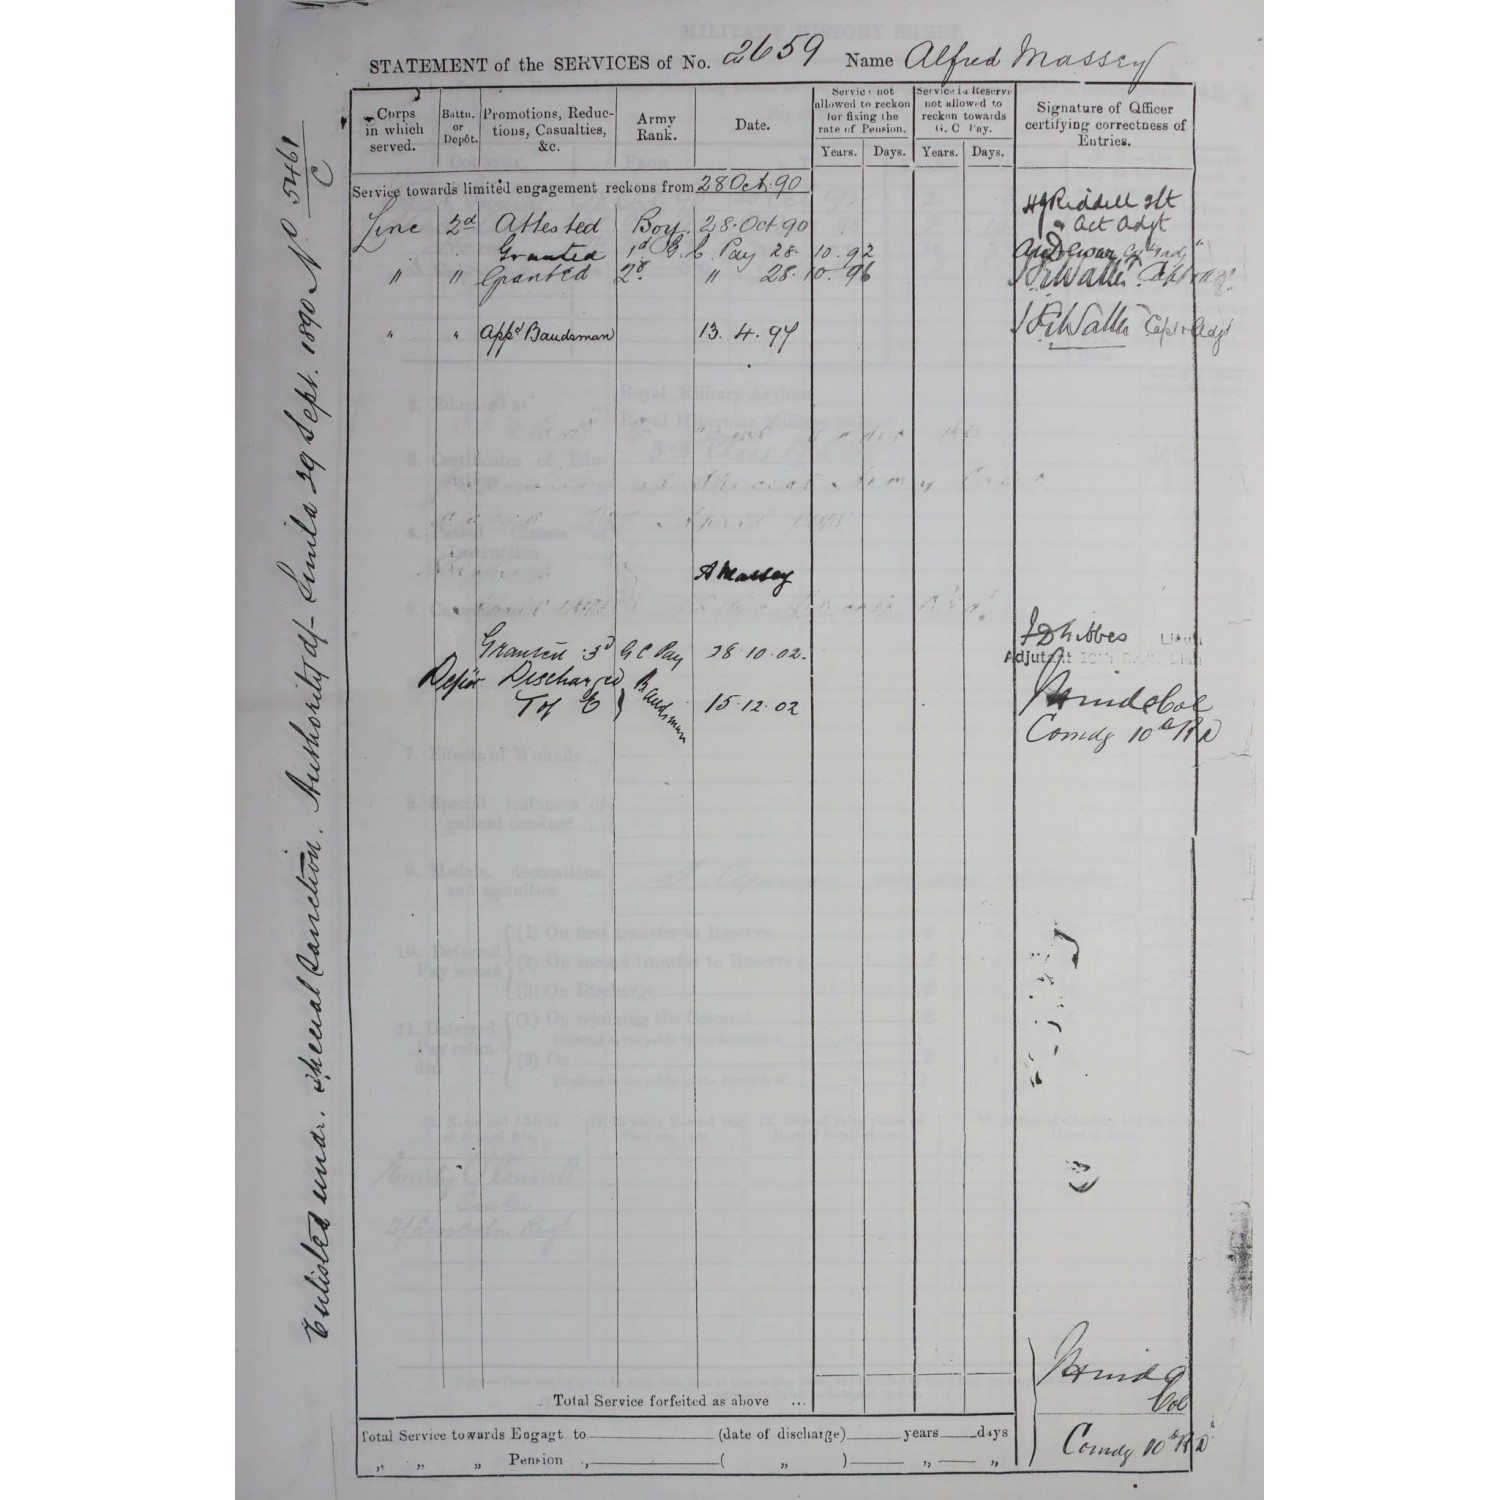 STATEMENT of the SERVICES of No. 2659 Name Alfred Massey
Corps in which served.
Battn. or Depôt.
Promotions, Reductions, Casualties, &c.
Army Rank.
Date.
Service not allowed to reckon for fixing the rate of Pension.
Years. Days.
Service in Reserve not allowed to reckon towards G. C Pay.
Years. Days.
Signature of Officer certifying correctness of Entries.
Service towards limited engagement reckons from 28 Oct. 90
Line 2d Attested Boy 28. Oct 90 HJ Riddell Lt
Act Adjt
Granted 1st G. C. Pay 28. 10. 92
" " Granted 2d. " 28. 10. 96
" " Appd Bandsman 13. 4. 97 Capt & Adjt
A Massey
Granted 3d G C Pay 28. 10. 02. Lieut
Adjutant
Discharged
T of E } Bandsman 15. 12. 02 Col
Comdg 10th R D
Enlisted under Special Sanction. Authority d/- Simla 29 Sept. 1890 No 5461/C
Col
Total Service forfeited as above ...
Total Service towards Engagt to (date of discharge) years days
" " " Pension " ( " ) " "
Comdg 10th R D